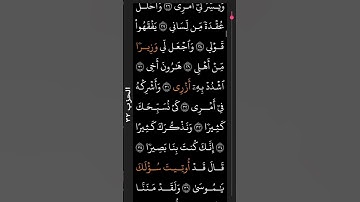 وَيَسِّرْ لِيٓ أَمْرِى ٢٦ وَٱحْلُلْ
عُقْدَةً مِّن لِّسَانِى ٢٧ يَفْقَهُوا۟
قَوْلِى ٢٨ وَٱجْعَل لِّى وَزِيرًا
مِّنْ أَهْلِى ٢٩ هَٰرُونَ أَخِى ٣٠
ٱشْدُدْ بِهِۦٓ أَزْرِى ٣١ وَأَشْرِكْهُ
فِىٓ أَمْرِى ٣٢ كَىْ نُسَبِّحَكَ
كَثِيرًا ٣٣ وَنَذْكُرَكَ كَثِيرًا
٣٤ إِنَّكَ كُنتَ بِنَا بَصِيرًا ٣٥
قَالَ قَدْ أُوتِيتَ سُؤْلَكَ
يَٰمُوسَىٰ ٣٦ وَلَقَدْ مَنَنَّا
الحزب ٣٢